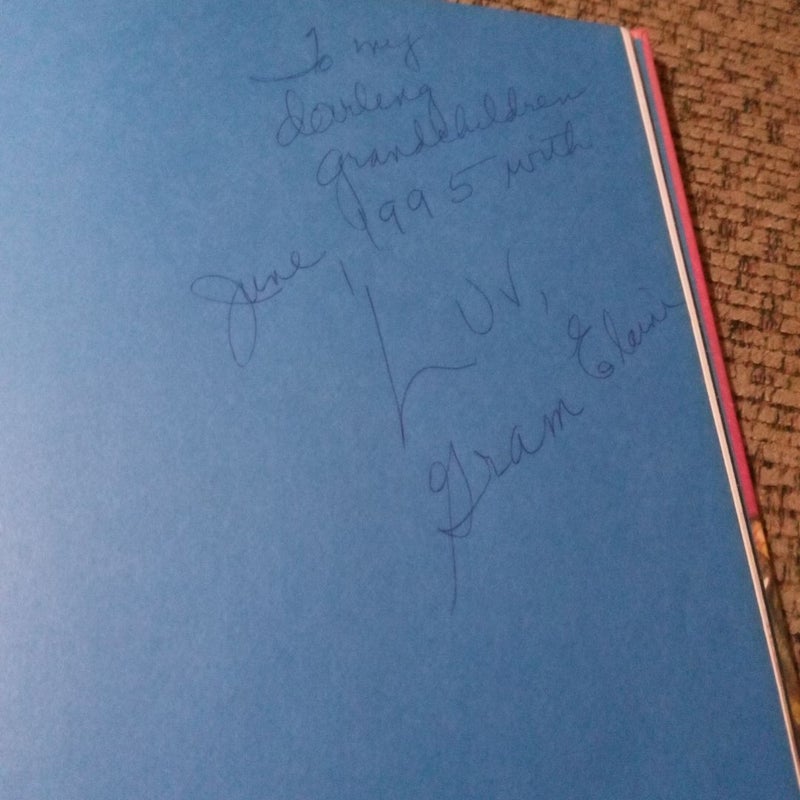 To my
darling
grandchildren
June, 1995 with
Luv,
Gram Elaine